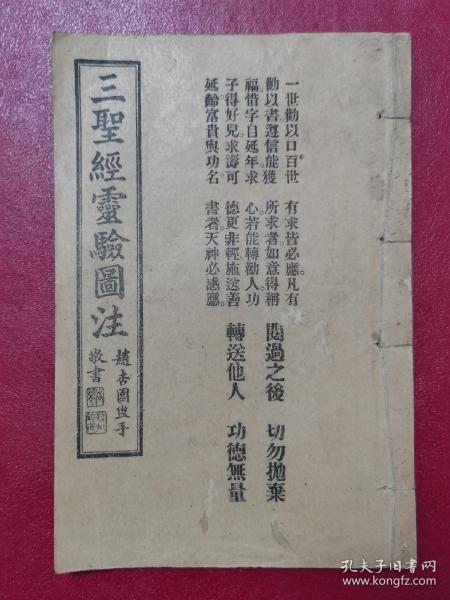 一世勸以口百世
勸以書遵信能獲
福惜字自延年求
子得好兒求壽可
延齡富貴與功名
有求皆必應凡有
所求者如意得稱
心若能轉勸人功
德更非輕施送善
書者天神必感應
閱過之後 切勿拋棄
轉送他人 功德無量
三聖經靈驗圖注
趙杏園盥手
敬書
孔夫子旧书网
www.kongfz.com